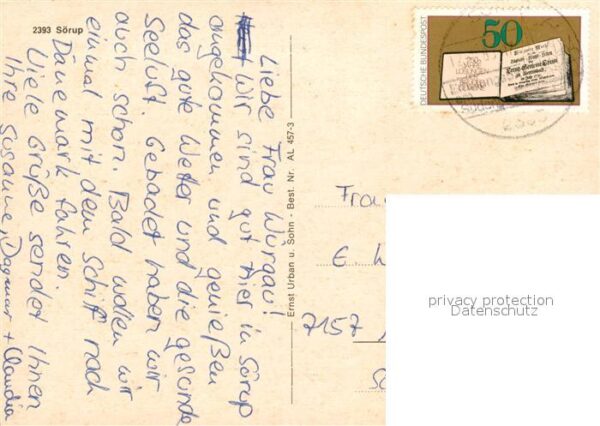 2393 Sörup
Liebe Frau Würgau!
Wir sind gut hier in Sörup
angekommen und genießen
das gute Wetter und die gesunde
Seeluft. Gebadet haben wir
auch schon. Bald wollen wir
einmal mit dem Schiff nach
Dänemark fahren.
Viele Grüße sendet Ihnen
Ihre Susanne, Dagmar + Claudia
Ernst Urban u. Sohn - Best. Nr. AL 457-3
DEUTSCHE BUNDESPOST
50
Frau
E
7157
privacy protection
Datenschutz